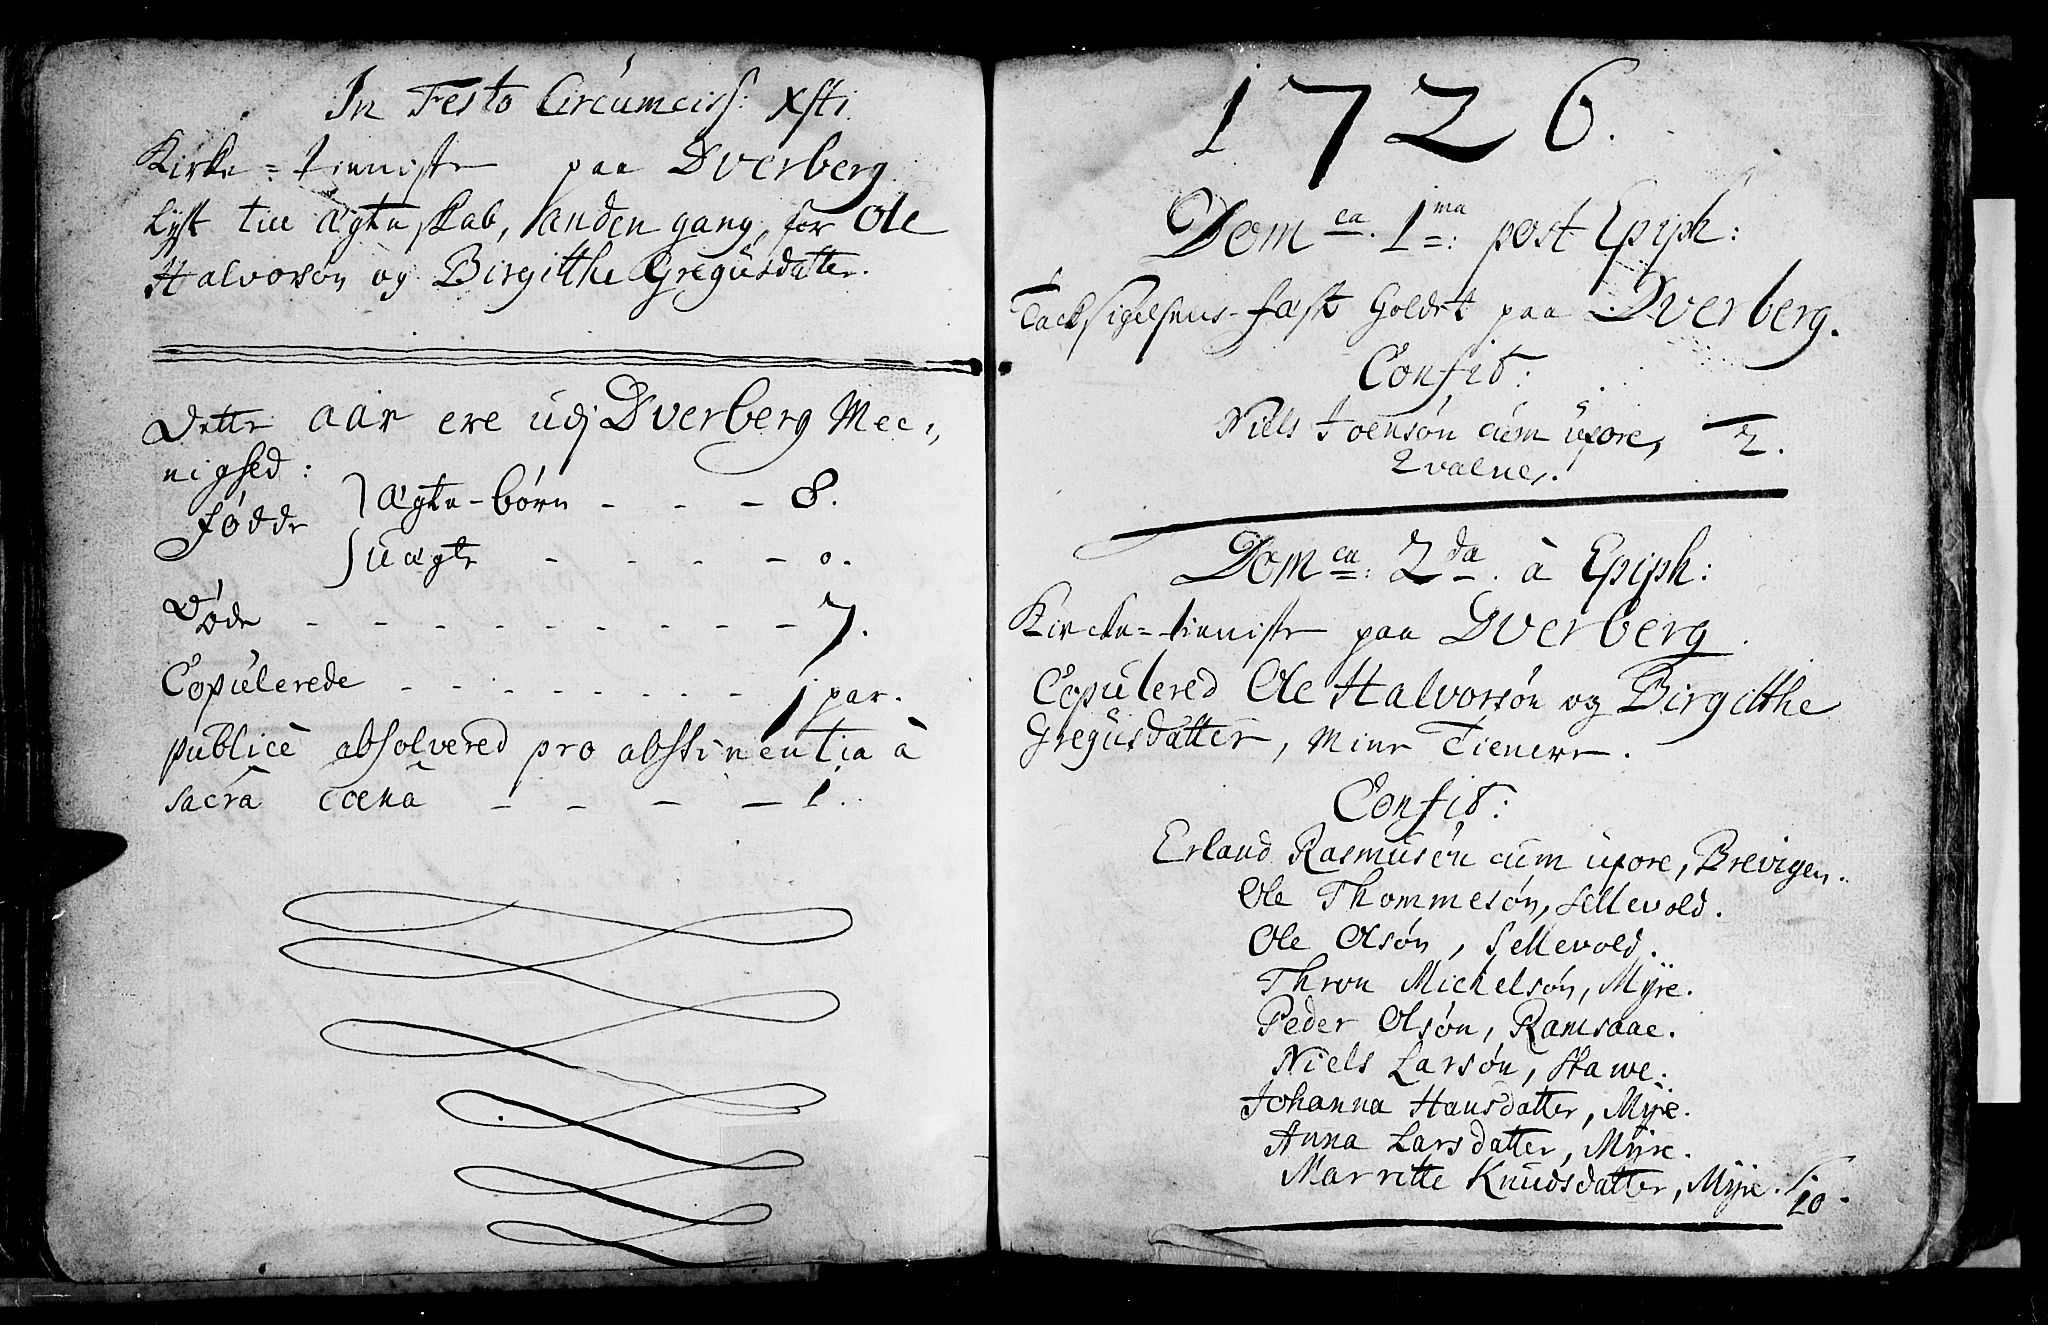 In Festo Circumciss: Xsti.
Kirke=tieniste paa Dverberg
Lyst till ægteskab, anden gang, for Ole
Halvorsøn og Birgitthe Gregusdatter.
Dette aar ere udj Dverberg Mee=
nighed:
Fødde
ægte-børn - - - 8.
uægte - - - - - 0.
Døde - - - - - - - - - - 7.
Copulerede - - - - - - - - 1 par.
publicè absolvered pro abstinentia à
sacrâ cœnâ - - - - 1.
1726.
Domca. 1ma: post Epiph:
Tacksigelsens-fæst holdet paa Dverberg.
Confit:
Niels Joensøn cum uxore,
Qvalne,. T 2.
Domca: 2da. à Epiph:
Kircke=tieniste paa Dverberg.
Copulered Ole Halvorsøn og Birgitthe
Gregusdatter, mine Tienere.
Confit:
Erland Rasmusøn cum uxore, Brevigen.
Ole Thommesøn, Sellevold.
Ole Olsøn, Sellevold.
Thron Michelsøn, Myre.
Peder Olsøn, Ramsaae.
Niels Larsøn, Stawe.
Johanna Hansdatter, Myre.
Anna Larsdatter, Myre.
Marritte Knudsdatter, Myre. T. 10.